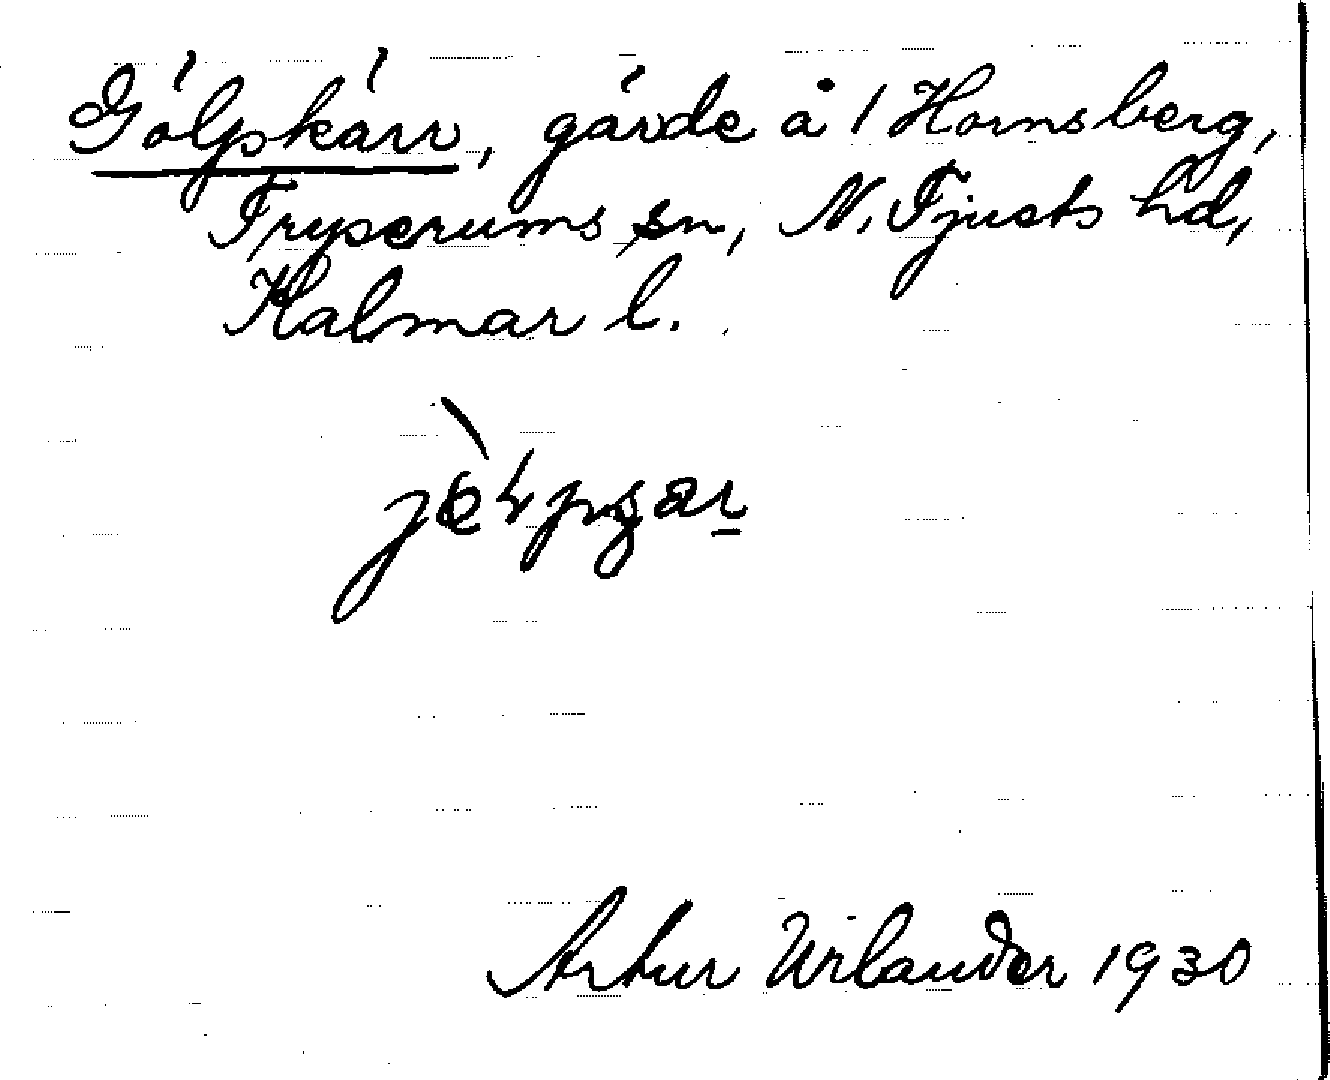 Gölpskärr, gärde å 1 Hornsberg,
Tryserums sn, N. Tjusts hd,
Kalmar l.
Artur Wilander 1930